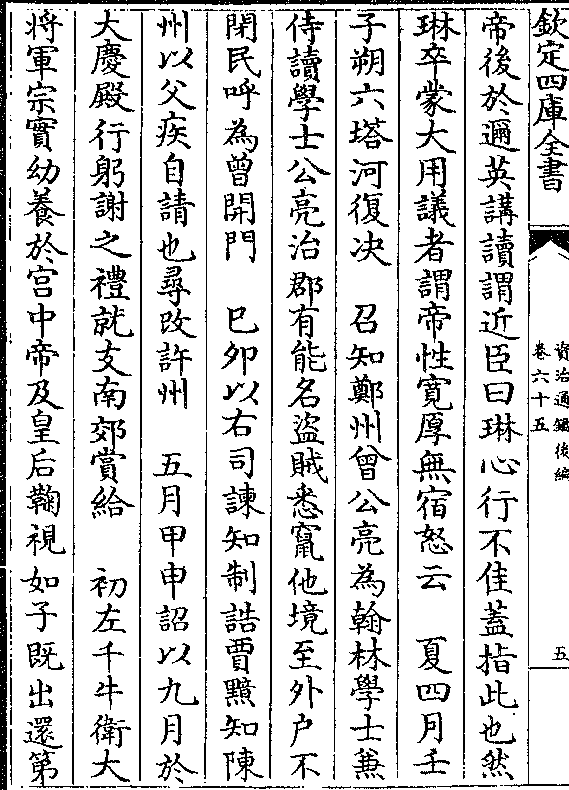 欽定四庫全書
資治通鑑後編
卷六十五
五
帝後於邇英講讀謂近臣曰琳心行不佳蓋指此也然
琳卒蒙大用議者謂帝性寛厚無宿怒云　夏四月壬
子朔六塔河復决　召知鄭州曾公亮為翰林學士兼
侍讀學士公亮治郡有能名盜賊悉竄他境至外户不
閉民呼為曾開門　已夘以右司諫知制誥賈黯知陳
州以父疾自請也尋改許州　五月甲申詔以九月於
大慶殿行躬謝之禮就支南郊賞給　初左千牛衛大
將軍宗實幼養於宫中帝及皇后鞠視如子既出還第